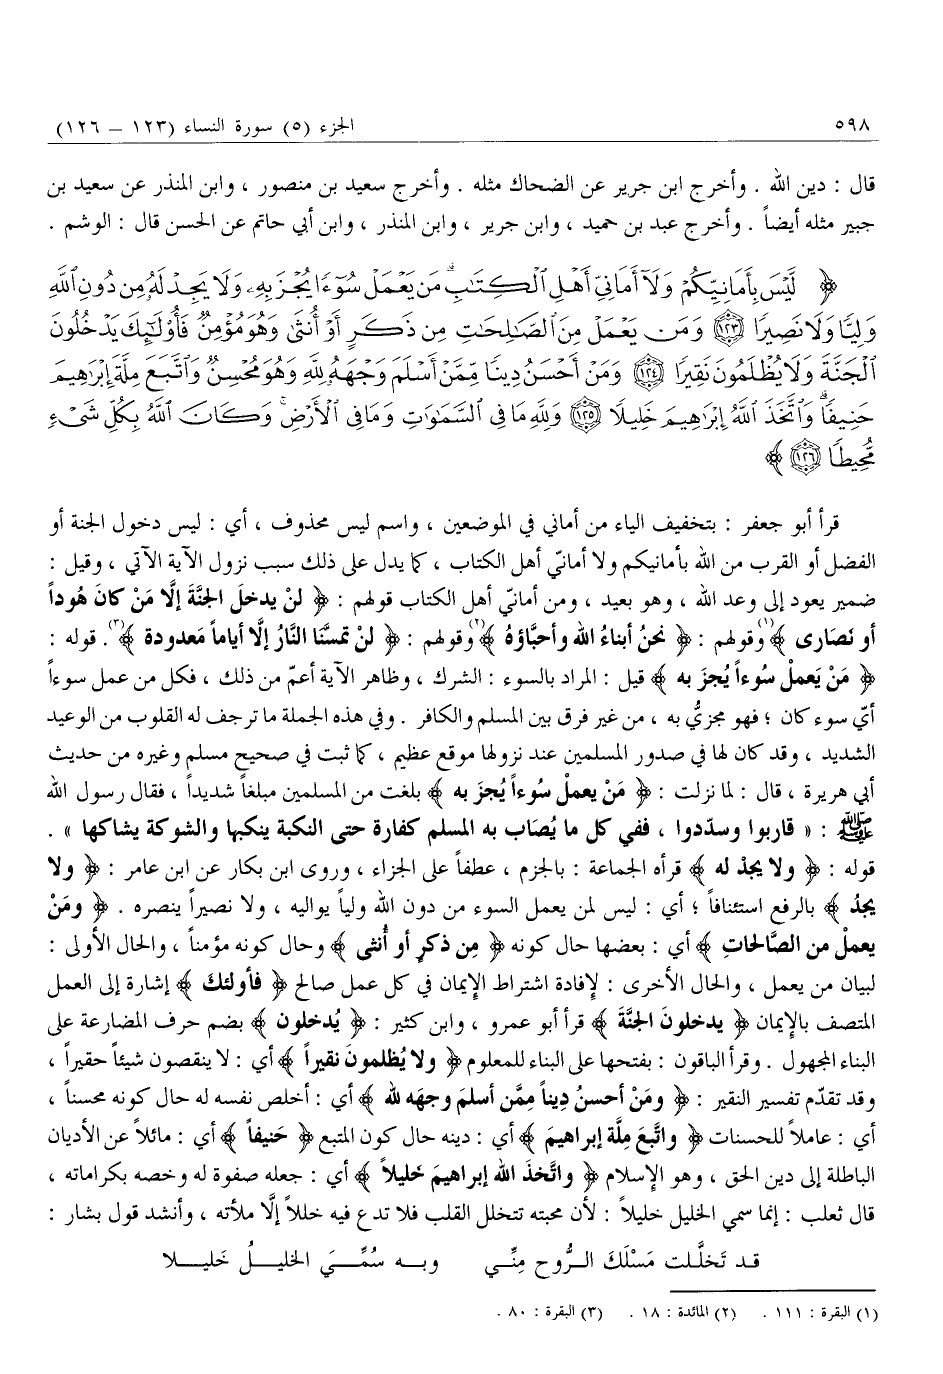 ٥٩٨ الجزء (٥) سورة النساء (١٢٣ – ١٢٦)
قال : دين الله . وأخرج ابن جرير عن الضحاك مثله . وأخرج سعيد بن منصور ، وابن المنذر عن سعيد بن
جبير مثله أيضاً . وأخرج عبد بن حميد ، وابن جرير ، وابن المنذر ، وابن أبي حاتم عن الحسن قال : الوشم .
﴿ لَّيْسَ بِأَمَانِيِّكُمْ وَلَآ أَمَانِيِّ أَهْلِ ٱلْكِتَٰبِۗ مَن يَعْمَلْ سُوٓءًا يُجْزَ بِهِۦ وَلَا يَجِدْ لَهُۥ مِن دُونِ ٱللَّهِ
وَلِيًّا وَلَا نَصِيرًا ١٢٣ وَمَن يَعْمَلْ مِنَ ٱلصَّٰلِحَٰتِ مِن ذَكَرٍ أَوْ أُنثَىٰ وَهُوَ مُؤْمِنٌ فَأُو۟لَٰٓئِكَ يَدْخُلُونَ
ٱلْجَنَّةَ وَلَا يُظْلَمُونَ نَقِيرًا ١٢٤ وَمَنْ أَحْسَنُ دِينًا مِّمَّنْ أَسْلَمَ وَجْهَهُۥ لِلَّهِ وَهُوَ مُحْسِنٌ وَٱتَّبَعَ مِلَّةَ إِبْرَٰهِيمَ
حَنِيفًاۗ وَٱتَّخَذَ ٱللَّهُ إِبْرَٰهِيمَ خَلِيلًا ١٢٥ وَلِلَّهِ مَا فِى ٱلسَّمَٰوَٰتِ وَمَا فِى ٱلْأَرْضِۚ وَكَانَ ٱللَّهُ بِكُلِّ شَىْءٍ
مُّحِيطًا ١٢٦ ﴾
قرأ أبو جعفر : بتخفيف الياء من أماني في الموضعين ، واسم ليس محذوف ، أي : ليس دخول الجنة أو
الفضل أو القرب من الله بأمانيكم ولا أمانيّ أهل الكتاب ، كما يدل على ذلك سبب نزول الآية الآتي ، وقيل :
ضمير يعود إلى وعد الله ، وهو بعيد ، ومن أمانيّ أهل الكتاب قولهم : ﴿ لنْ يدخلَ الجنَّةَ إلَّا مَنْ كانَ هُوداً
أو نَصَارى ﴾(١) وقولهم : ﴿ نحنُ أبناءُ الله وأحبَّاؤهُ ﴾(٢) وقولهم : ﴿ لنْ تمسَّنا النَّارُ إلَّا أياماً مَعدودة ﴾(٣). قوله :
﴿ مَنْ يَعملْ سُوءاً يُجزَ به ﴾ قيل : المراد بالسوء : الشرك ، وظاهر الآية أعمّ من ذلك ، فكل من عمل سوءاً
أيّ سوء كان ؛ فهو مجزيٌّ به ، من غير فرق بين المسلم والكافر . وفي هذه الجملة ما ترجف له القلوب من الوعيد
الشديد ، وقد كان لها في صدور المسلمين عند نزولها موقع عظيم ، كما ثبت في صحيح مسلم وغيره من حديث
أبي هريرة ، قال : لما نزلت : ﴿ مَنْ يعملْ سُوءاً يُجزَ به ﴾ بلغت من المسلمين مبلغاً شديداً ، فقال رسول الله
ﷺ : « قاربوا وسدّدوا ، ففي كل ما يُصَاب به المسلم كفارة حتى النكبة ينكبها والشوكة يشاكها » .
قوله : ﴿ ولا يجدْ له ﴾ قرأه الجماعة : بالجزم ، عطفاً على الجزاء ، وروى ابن بكار عن ابن عامر : ﴿ ولا
يجدُ ﴾ بالرفع استئنافاً ؛ أي : ليس لمن يعمل السوء من دون الله ولياً يواليه ، ولا نصيراً ينصره . ﴿ ومَنْ
يعملْ من الصَّالحَاتِ ﴾ أي : بعضها حال كونه ﴿ مِن ذكرٍ أو أُنثى ﴾ وحال كونه مؤمناً ، والحال الأولى :
لبيان من يعمل ، والحال الأخرى : لإفادة اشتراط الإيمان في كل عمل صالح ﴿ فأولئكَ ﴾ إشارة إلى العمل
المتصف بالإيمان ﴿ يدخلونَ الجنَّةَ ﴾ قرأ أبو عمرو ، وابن كثير : ﴿ يُدخلون ﴾ بضم حرف المضارعة على
البناء المجهول . وقرأ الباقون : بفتحها على البناء للمعلوم ﴿ ولا يُظلمونَ نقيراً ﴾ أي : لا ينقصون شيئاً حقيراً ،
وقد تقدّم تفسير النقير : ﴿ ومَنْ أحسنُ دِيناً ممَّن أسلمَ وجهَه لله ﴾ أي : أخلص نفسه له حال كونه محسناً ،
أي : عاملاً للحسنات ﴿ واتَّبعَ مِلَّة إبراهيمَ ﴾ أي : دينه حال كون المتبع ﴿ حَنيفاً ﴾ أي : مائلاً عن الأديان
الباطلة إلى دين الحق ، وهو الإسلام ﴿ واتَّخذَ الله إبراهيمَ خَليلاً ﴾ أي : جعله صفوة له وخصه بكراماته ،
قال ثعلب : إنما سمي الخليل خليلاً : لأن محبته تتخلل القلب فلا تدع فيه خللاً إلَّا ملأته ، وأنشد قول بشار :
قد تَخلَّلت مَسْلَكَ الرُّوح مِنِّي وبه سُمِّيَ الخليلُ خَليلا
(١) البقرة : ١١١ . (٢) المائدة : ١٨ . (٣) البقرة : ٨٠ .